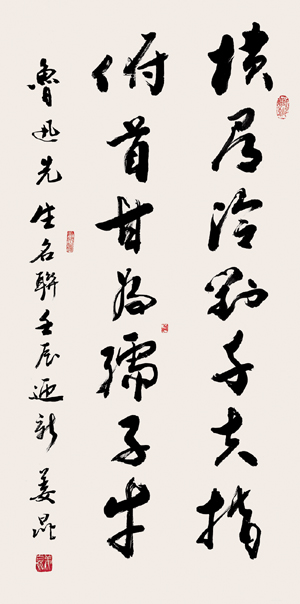 横眉冷對千夫指
俯首甘為孺子牛
魯迅先生名聯壬辰迎新 姜昆